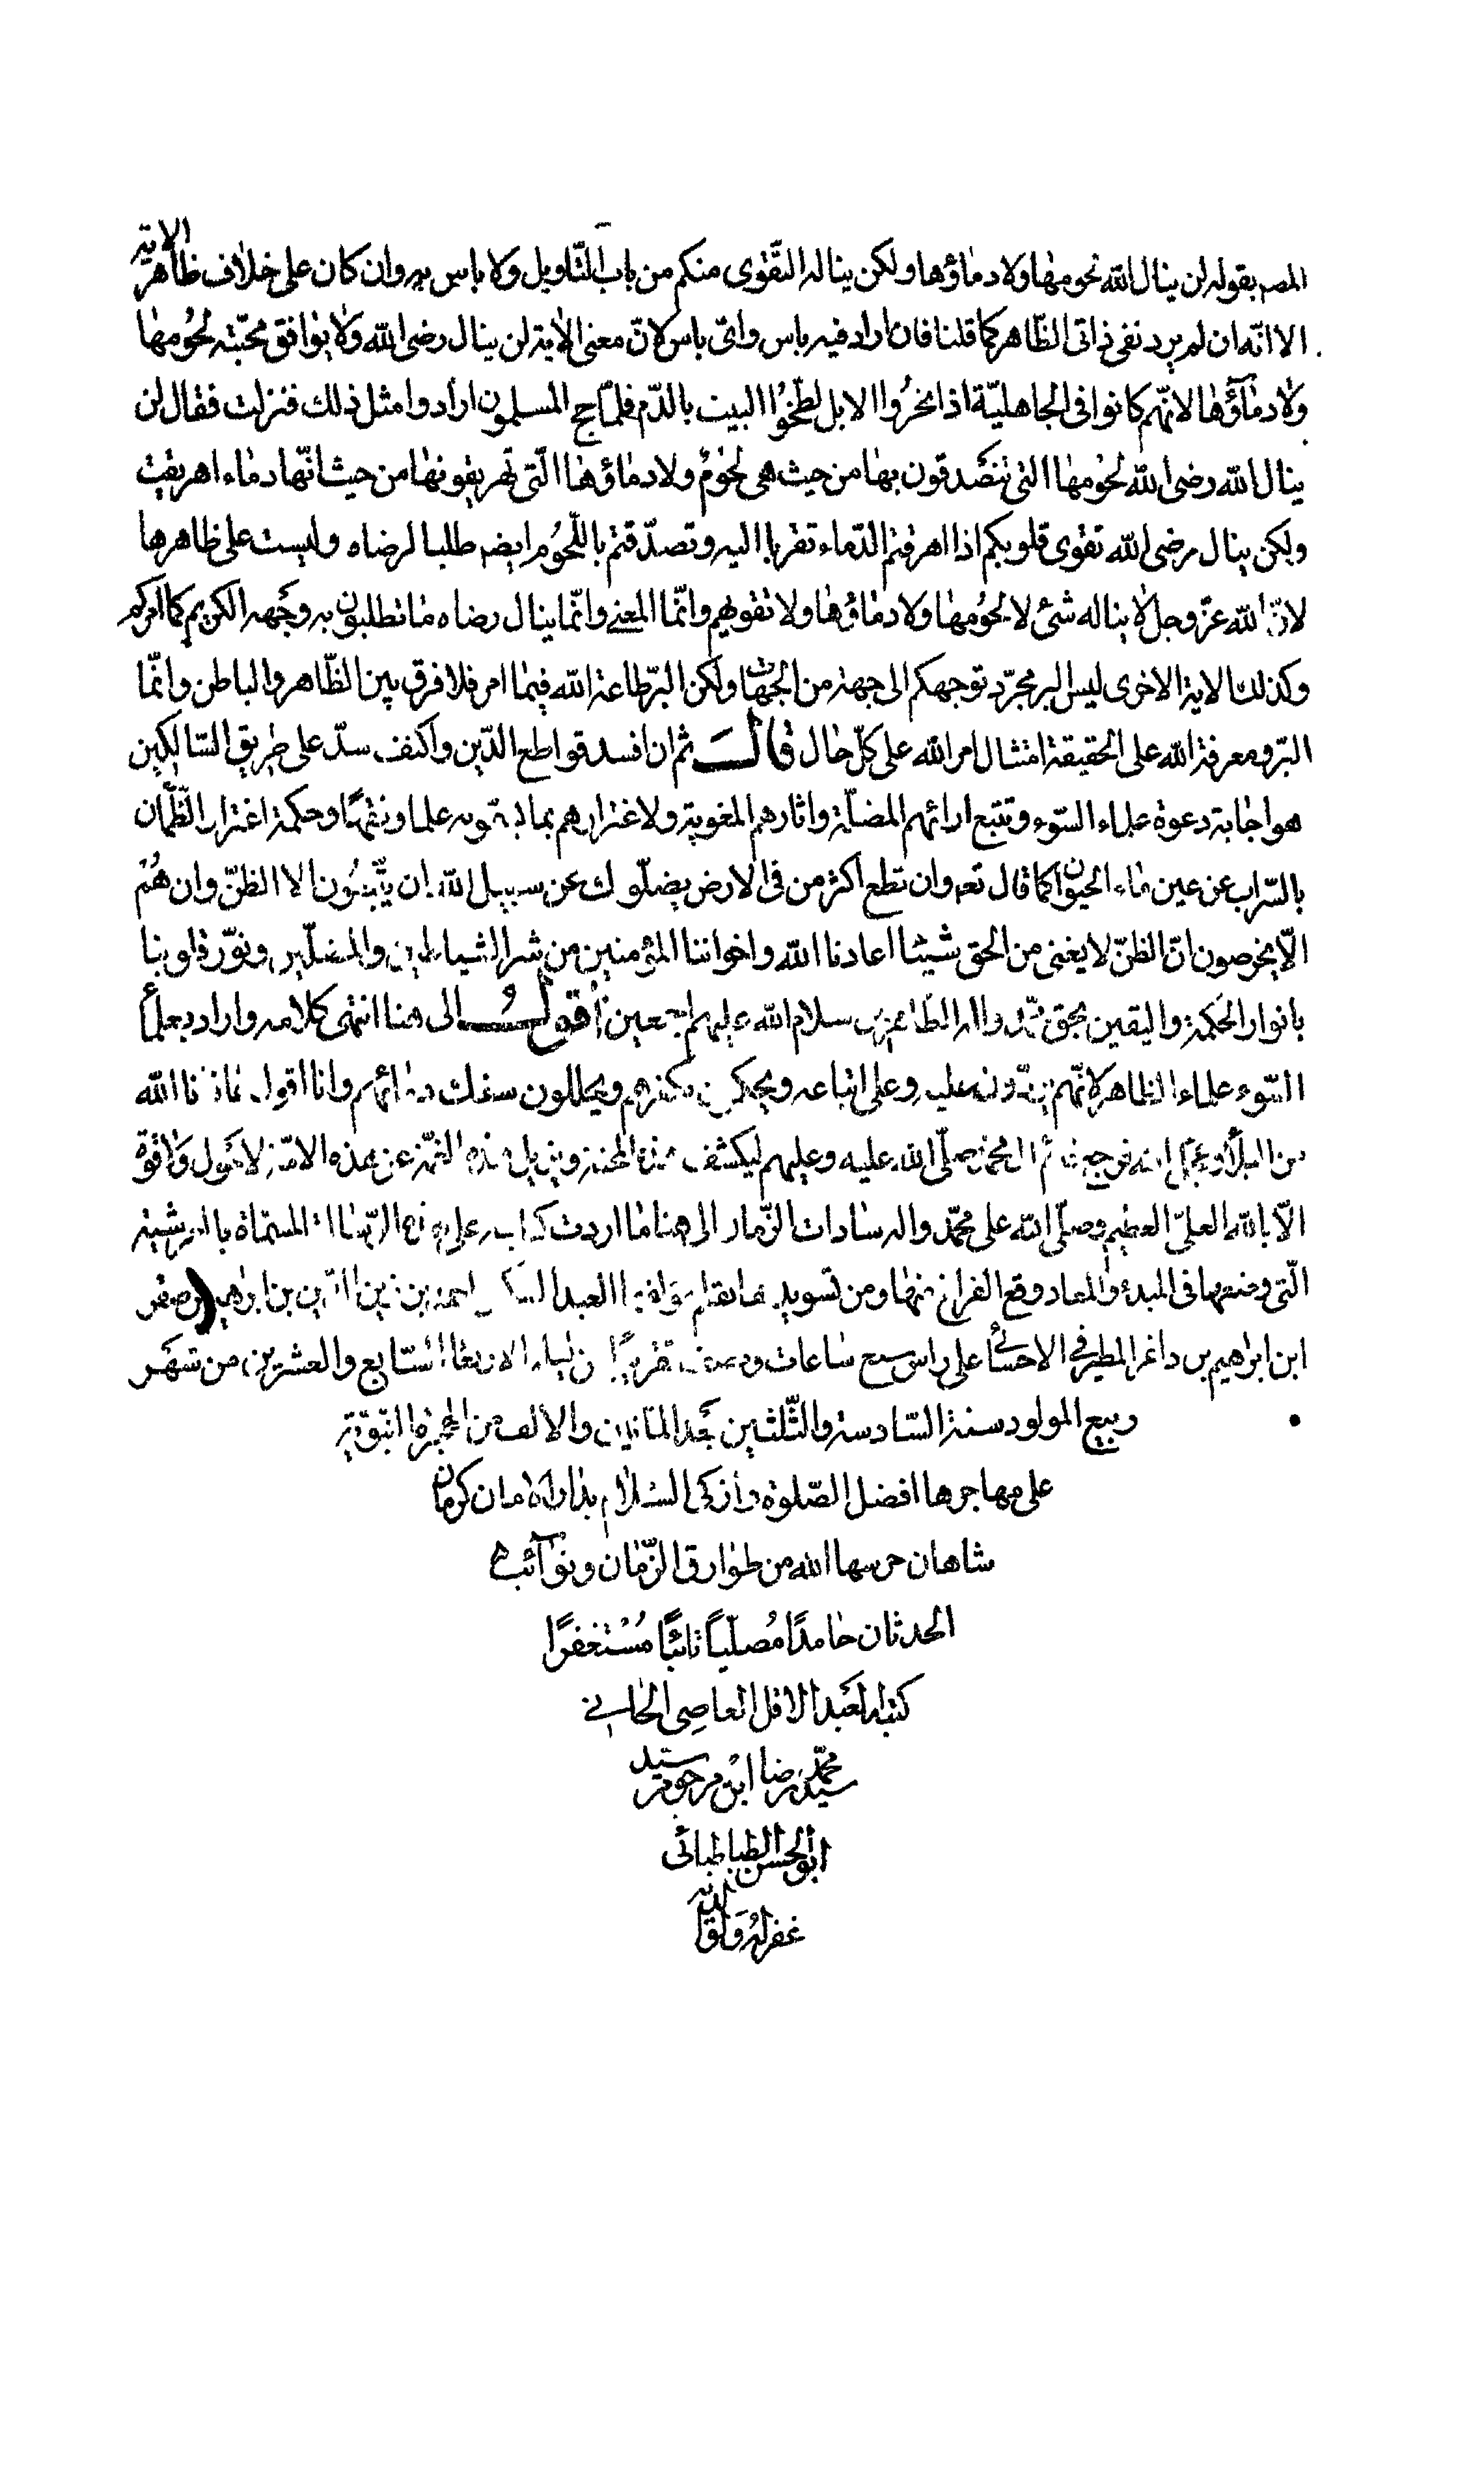 المصـ بقوله لن ينال الله لحومها ولا دماؤها ولكن يناله التّقوى منكم من باب التّاويل ولا باس به وان كان على خلاف ظاهر الاية
الا انّه ان لم يرد نفى ذاتى الظّاهر كما قلنا فان اراد فيه باس واىّ باس لانّ معنى الاية لن ينال رضى الله ولا يوافق محبّته لحومها
ولا دماؤها لانّهم كانوا فى الجاهليّة اذا نحروا الابل لطّخوا البيت بالدّم فلمّا حج المسلمون ارادوا مثل ذلك فنزلت فقال لن
ينال الله رضى الله لحومها التى تتصَدقون بها من حيث هى لحومٌ ولا دماؤها الّتى تهريقونها من حيث انّها دماء اهريقت
ولكن ينال رضى الله تقوى قلوبكم اذا اهرقتم الدّماء تقربا اليه وتصدّقتم باللّحوم ايضـ طلبا لرضاه وليست على ظاهرها
لانّ الله عزّ وجل لا يناله شئ لا لحُومها ولا دماؤها ولا تقويهم وانّما المعنى وانّما ينال رضاه ما تطلبون به وجهه الكريم كما امركم
وكذلك الاية الاخرى ليس البر مجرّد توجهكم الى جهة من الجهات ولكن البرّ طاعة الله فيما امر فلا فرق بين الظّاهر والباطن وانّما
البرّ ومعرفة الله على الحقيقة امتثال امر الله على كلّ حال قالَ ثم ان افسد قواطع الدّين واكنف سدّ على طريق السّالكين
هو اجابة دعوة علماء السّوء وتتبع ارائهم المضلّة واثارهم المغوية ولاغترارهم بما يسمّونه علما وفقها وحكمة اغترار الظّمان
بالسّراب عن عين ماء الحيوان كما قال تعـ وان تطع اكثر من فى الارض يضلّوك عن سبيل الله ان يتّبعُون الا الظنّ وان هُم
الّا يخرصون انّ الظنّ لا يغنى من الحق شيئا اعاذنا الله واخواننا المؤمنين من شر الشياطين والمضلّين ونوّر قلوبنا
بانوار الحكمة واليقين بحق محمّد واله الطاهرين سلام الله عليهم اجمعين اقولُ الى هنا انتهى كلامه واراد بعلماء
السّوء علماء الظاهر لانّهم يردّونه عليه وعلى اتباعه ويحكمون بكفرهم ويحللون سفك دمائهم وانا اقول عاذنا الله
من البلاء وعجّل فرجه فرج آل محمّد صلّى الله عليه وعليهم ليكشف هذه المحنة ويزيل هذه الغمّة عن هذه الامّة لا حول ولا قوّة
الّا بالله العلىّ العظيم وصلّى الله على محمّد واله سادات الزّمان الى هنا ما اردت كتابه على هذه الرّسالة المسمّاة بالعرشيّة
الّتى وضعها فى المبدء والمعاد وقع الفراغ منها ومن تسويدها بقلم مؤلفها العبد المسكين احمد بن زين الدّين بن ابرهيم بن صقر
ابن ابراهيم بن داغر المطيرفى الاحسائى على راس سبع ساعات ونصف تقريبًا من ليلة الاربعا السّابع والعشرين من شهر
ربيع المولود سنة السّادسة والثّلثين بعد المائتين والالف من الهجرة النّبوّيّة
على مهاجرها افضل الصّلوة وازكى السّلام بدار الامان كرمان
شاهان حرسها الله من طوارق الزّمان ونوآئب
الحدثان حامدًا مُصلّياً تائبًا مُسْتغفرًا
كتبه العَبد الاقل العاصِى الجانى
سيّد محمّد رضا ابن مرحوم سيّد
ابو الحسن الطباطبائى
غفر الله لهُ وَلوالديه